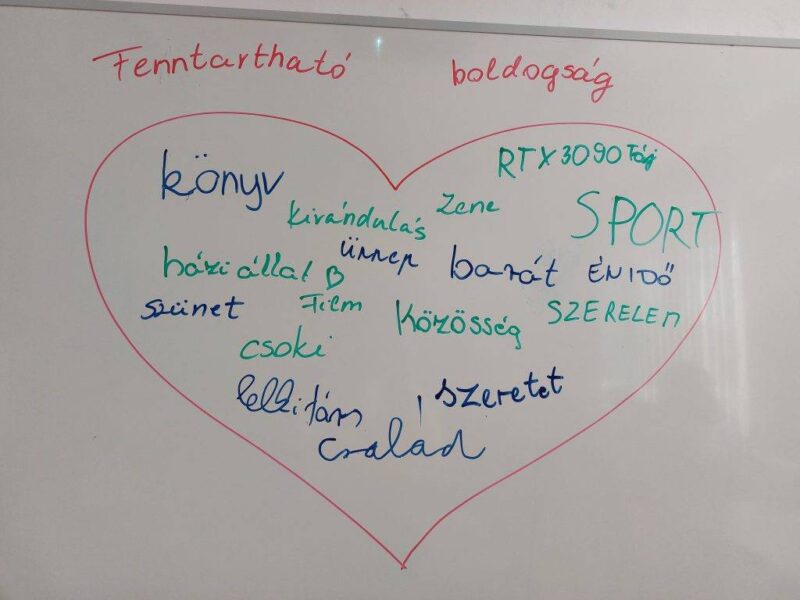 Fenntartható boldogság
könyv
RTX3090
kirándulás
Zene
SPORT
ünnep
háziállat
barát
ÉNIDŐ
szünet
Film
Közösség
SZERELEM
csoki
lelkitárs
szeretet
család